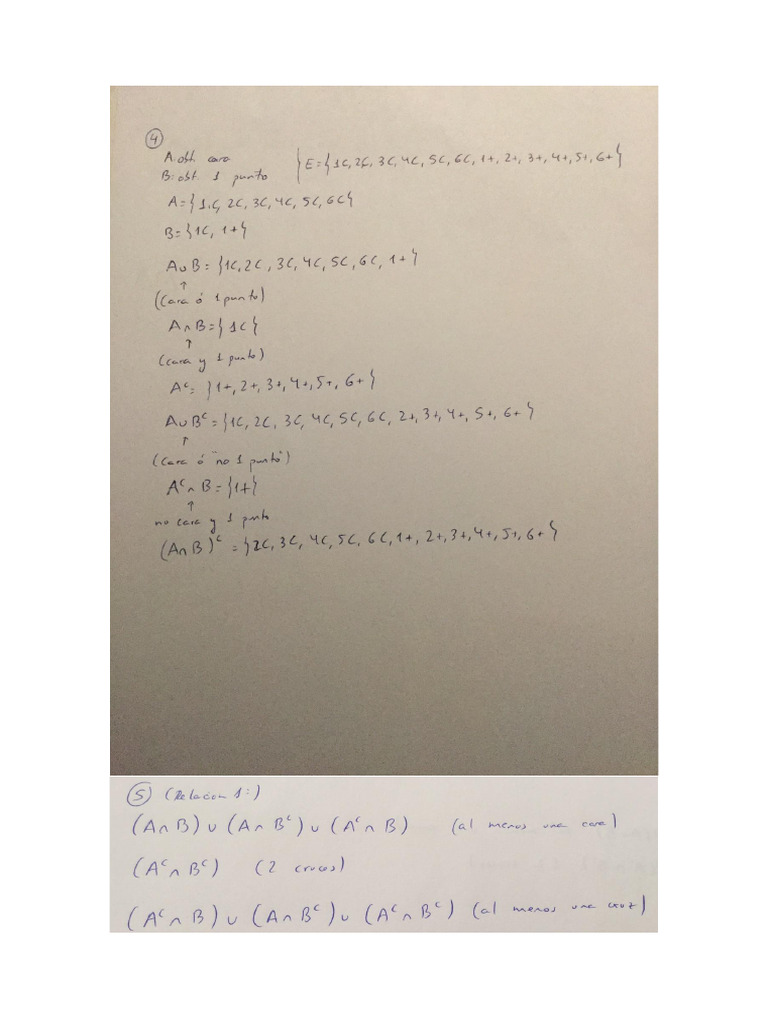 4
A: obt. cara
B: obt. 1 punto
{E={1C, 2C, 3C, 4C, 5C, 6C, 1+, 2+, 3+, 4+, 5+, 6+}
A={1C, 2C, 3C, 4C, 5C, 6C}
B={1C, 1+}
A∪B={1C, 2C, 3C, 4C, 5C, 6C, 1+}
↑
(Cara ó 1 punto)
A∩B={1C}
↑
(cara y 1 punto)
Aᶜ={1+, 2+, 3+, 4+, 5+, 6+}
A∪Bᶜ={1C, 2C, 3C, 4C, 5C, 6C, 2+, 3+, 4+, 5+, 6+}
↑
(Cara ó "no 1 punto")
Aᶜ∩B={1+}
↑
no cara y 1 punto
(A∩B)ᶜ={2C, 3C, 4C, 5C, 6C, 1+, 2+, 3+, 4+, 5+, 6+}
5 (Relacion 1:)
(A∩B)∪(A∩Bᶜ)∪(Aᶜ∩B) (al menos una cara)
(Aᶜ∩Bᶜ) (2 cruces)
(Aᶜ∩B)∪(A∩Bᶜ)∪(Aᶜ∩Bᶜ) (al menos una cruz)